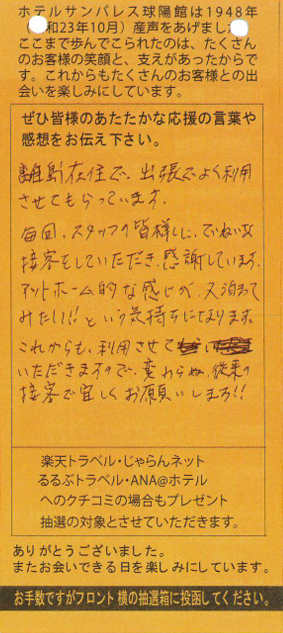 ホテルサンパレス球陽館は1948年
和23年10月）産声をあげまし
ここまで歩んでこられたのは、たくさん
のお客様の笑顔と、支えがあったからで
す。これからもたくさんのお客様との出
会いを楽しみにしています。
ぜひ皆様のあたたかな応援の言葉や
感想をお伝え下さい。
離島在住で、出張でよく利用
させてもらっています。
毎回、スタッフの皆様には、ていねいな
接客をしていただき、感謝しています。
アットホーム的な感じが、又泊まって
みたい!!という気持ちになります。
これからも、利用させて
いただきますので、変わらぬ、従来の
接客で宜しくお願いします!!
楽天トラベル・じゃらんネット
るるぶトラベル・ANA@ホテル
へのクチコミの場合もプレゼント
抽選の対象とさせていただきます。
ありがとうございました。
またお会いできる日を楽しみにしています。
お手数ですがフロント横の抽選箱に投函してください。